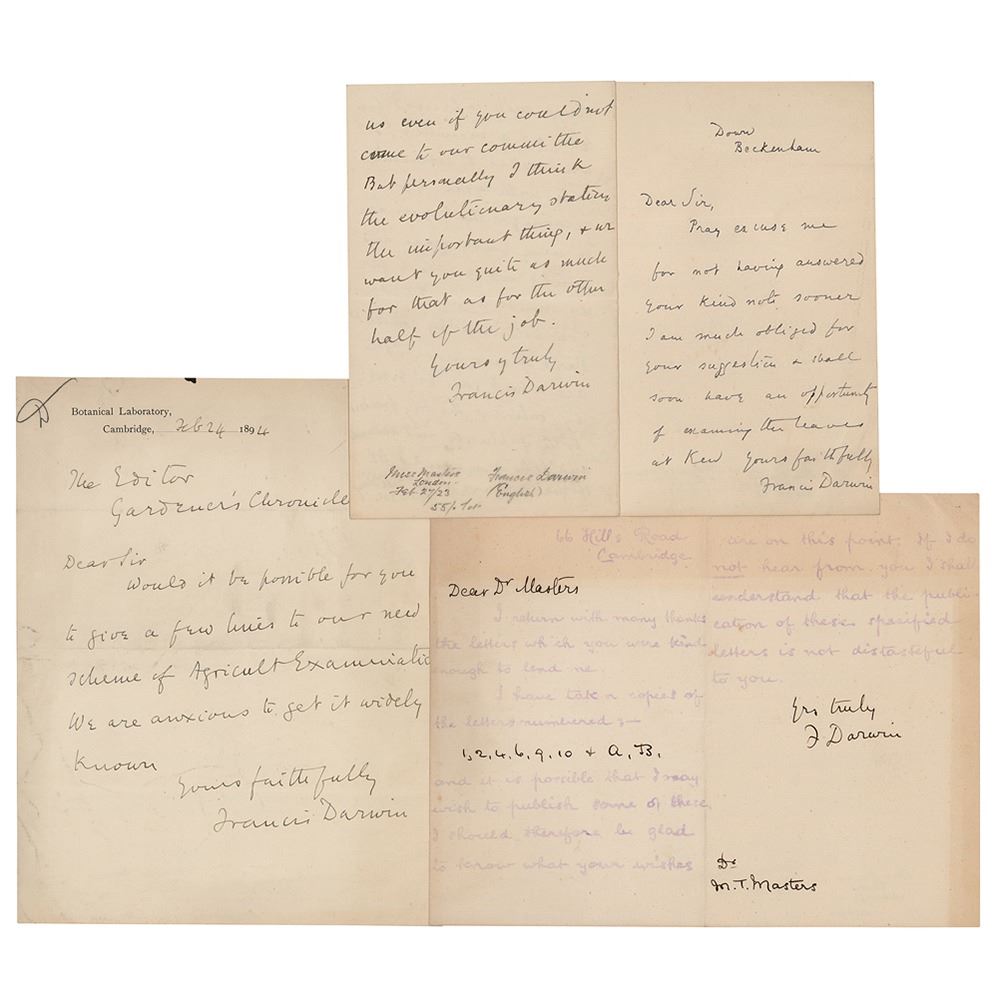 us even if you could not
come to our committee
But personally I think
the evolutionary station
the important thing, & we
want you quite as much
for that as for the other
half of the job.
Yours truly
Francis Darwin
Messrs Masters
London
Feb 27/23
Francis Darwin
(English)
55/-
Down
Beckenham
Dear Sir,
Pray excuse me
for not having answered
your kind note sooner
I am much obliged for
your suggestion & shall
soon have an opportunity
of examining the leaves
at Kew Yours faithfully
Francis Darwin
Botanical Laboratory,
Cambridge, Feb 24 1894
The Editor
Gardener's Chronicle
Dear Sir
Would it be possible for you
to give a few lines to our new
scheme of Agricult Examinatio
We are anxious to get it widely
known
Yours faithfully
Francis Darwin
66 Hills Road
Cambridge
Dear Dr Masters
I return with many thanks
the letters which you were kind
enough to lend me.
I have taken copies of
the letters numbered :-
1, 2, 4, 6, 9, 10 & A, B,
and it is possible that I may
wish to publish some of these
I should therefore be glad
to know what your wishes
are on this point. If I do
not hear from you I shall
understand that the publi-
cation of these specified
letters is not distasteful
to you.
Yrs truly
F Darwin
Dr
M.T. Masters